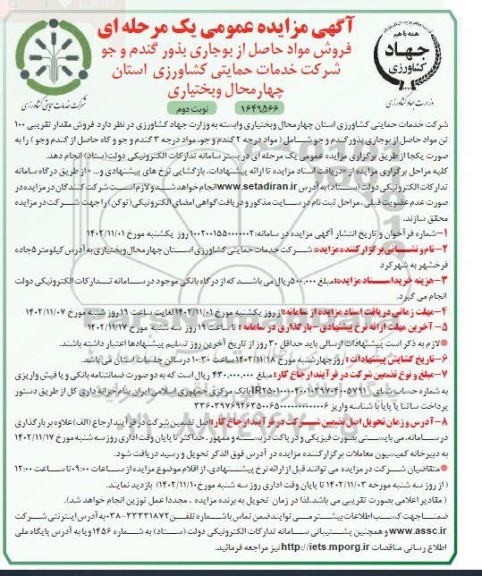 آگهی مزایده عمومی یک مرحله ای
فروش مواد حاصل از بوجاری بذور گندم و جو
شرکت خدمات حمایتی کشاورزی استان
چهارمحال وبختیاری
۱۶۴۹۵۶۶ نوبت دوم
همه با هم
جهاد
کشاورزی
وزارت جهاد کشاورزی
شرکت خدمات حمایتی کشاورزی
شرکت خدمات حمایتی کشاورزی استان چهارمحال وبختیاری وابسته به وزارت جهاد کشاورزی در نظر دارد فروش مقدار تقریبی ۱۰۰
تن مواد حاصل از بوجاری بذور گندم و جو شامل ( مواد درجه ۲ گندم و جو، مواد درجه ۳ گندم و جو و کاه حاصل از گندم وجو ) را به
صورت یکجا از طریق برگزاری مزایده عمومی یک مرحله ای در بستر سامانه تدارکات الکترونیکی دولت(ستاد) انجام دهد.
کلیه مراحل برگزاری مزایده از دریافت اسناد مزایده تا ارائه پیشنهادات، بازگشایی نرخ های پیشنهادی و... از طریق درگاه سامانه
تدارکات الکترونیکی دولت (ستاد) به آدرس www.setadiran.ir انجام خواهد شد و لازم است شرکت کنندگان در مزایده در
صورت عدم عضویت قبلی، مراحل ثبت نام در سایت مذکور و دریافت گواهی امضای الکترونیکی (توکن) را جهت شرکت در مزایده
محقق سازند.
۱-شماره فراخوان و تاریخ انتشار آگهی مزایده در سامانه: روز یکشنبه مورخ ۱۴۰۲/۱۱/۰۱
۲- نام و نشانی برگزار کننده مزایده: شرکت خدمات حمایتی کشاورزی استان چهارمحال وبختیاری به آدرس کیلومتر ۵ جاده
فرخشهر به شهرکرد
۳-هزینه خرید اسناد مزایده: مبلغ ۵۰۰,۰۰۰ ریال می باشد که از درگاه بانکی موجود در سامانه تدارکات الکترونیکی دولت
انجام می گیرد.
۴- مهلت زمانی دریافت اسناد مزایده از سامانه: از روز یکشنبه مورخ ۱۴۰۲/۱۱/۰۱ لغایت ساعت ۱۹ روز شنبه مورخ ۱۴۰۲/۱۱/۰۷
۵- آخرین مهلت ارائه نرخ پیشنهادی - بارگذاری در سامانه: تا ساعت ۱۹ روز سه شنبه مورخ ۱۴۰۲/۱۱/۱۷
لازم به ذکر است پیشنهادات ارسالی باید حداقل ۳۰ روز از تاریخ آخرین روز تسلیم پیشنهادها اعتبار داشته باشند.
۶- تاریخ گشایش پیشنهادات: روز چهارشنبه مورخ ۱۴۰۲/۱۱/۱۸ ساعت ۱۰:۳۰ در سالن جلسات استان می باشد.
۷- مبلغ و نوع تضمین شرکت در فرآیند ارجاع کار: مبلغ ۴۳۰,۰۰۰,۰۰۰ ریال است که به دو صورت ضمانتنامه بانکی و یا فیش واریزی
به شماره حساب شبای بانک مرکزی جمهوری اسلامی ایران بنام خزانه داری کل از طریق دستور
پرداخت ساتنا یا پایا با شناسه واریز
۸- آدرس و زمان تحویل اصل تضمین شرکت در فرآیند ارجاع کار: اصل تضمین شرکت در فرآیند ارجاع (الف) علاوه بر بارگذاری
در سامانه، می بایستی بصورت فیزیکی و در پاکت دربسته و ممهور، حداکثر تا پایان وقت اداری روز سه شنبه مورخ ۱۴۰۲/۱۱/۱۷
به دبیرخانه کمیسیون معاملات برگزار کننده مزایده در آدرس فوق الذکر تحویل و رسید دریافت شود.
متقاضیان شرکت در مزایده می توانند قبل از ارائه نرخ پیشنهادی، از اقلام موضوع مزایده از ساعات ۰۹:۰۰ تا ساعت ۱۲:۰۰
( از روز سه شنبه مورخه ۱۴۰۲/۱۱/۰۳ تا پایان وقت اداری روز سه شنبه مورخ ۱۴۰۲/۱۱/۱۰) بازدید نمایند.
( مقادیر اعلامی بصورت تقریبی می باشد.لذا در زمان تحویل به برنده مزایده ، مجددا عمل توزین انجام خواهد شد).
ضمنا جهت کسب اطلاعات بیشتر می توانید ضمن تماس با شماره تلفن ۳۳۳۳۱۸۷۲-۰۳۸ به آدرس اینترنتی شرکت
www.assc.ir و همچنین پشتیبانی سامانه تدارکات الکترونیکی دولت (ستاد) به شماره ۱۴۵۶ و یا به آدرس پایگاه ملی
اطلاع رسانی مناقصات http://iets.mporg.ir نیز مراجعه فرمائید.